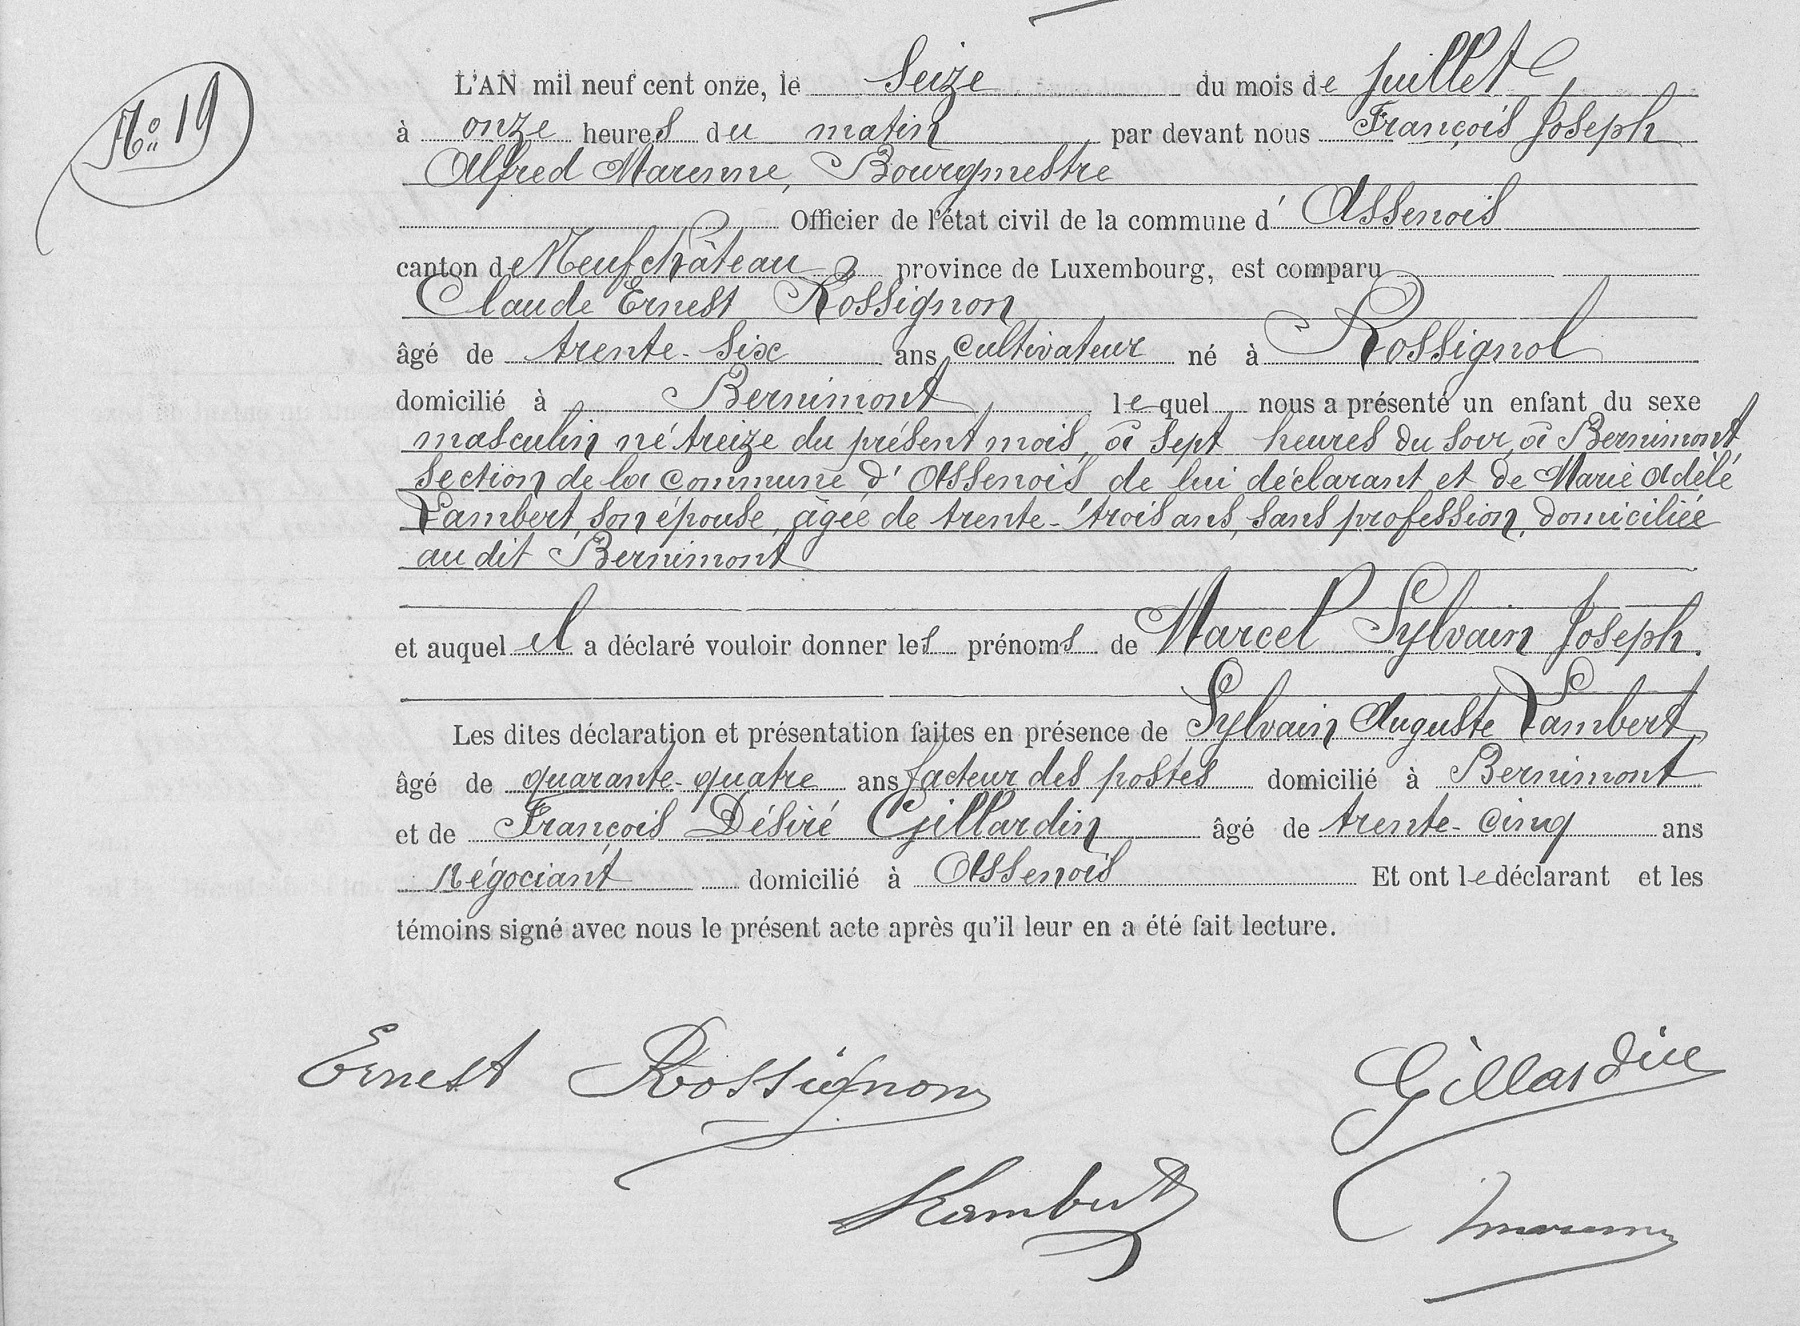 No 19
L'AN mil neuf cent onze, le Seize du mois de Juillet
à onze heures du matin par devant nous François Joseph
Alfred Marenne, Bourgmestre
Officier de l'état civil de la commune d' Assenois
canton de Neufchâteau province de Luxembourg, est comparu
Claude Ernest Rossignon
âgé de trente-six ans cultivateur né à Rossignol
domicilié à Bernimont lequel nous a présenté un enfant du sexe
masculin né treize du présent mois, à sept heures du soir, à Bernimont,
section de la commune d'Assenois de lui déclarant et de Marie Adèle
Lambert, son épouse, âgée de trente-trois ans, sans profession, domiciliée
au dit Bernimont
et auquel il a déclaré vouloir donner les prénoms de Marcel Sylvain Joseph.
Les dites déclaration et présentation faites en présence de Sylvain Auguste Lambert
âgé de quarante-quatre ans facteur des postes domicilié à Bernimont
et de François Désiré Gillardin âgé de trente-cinq ans
négociant domicilié à Assenois Et ont le déclarant et les
témoins signé avec nous le présent acte après qu'il leur en a été fait lecture.
Ernest Rossignon Gillardin
Lambert Marenne